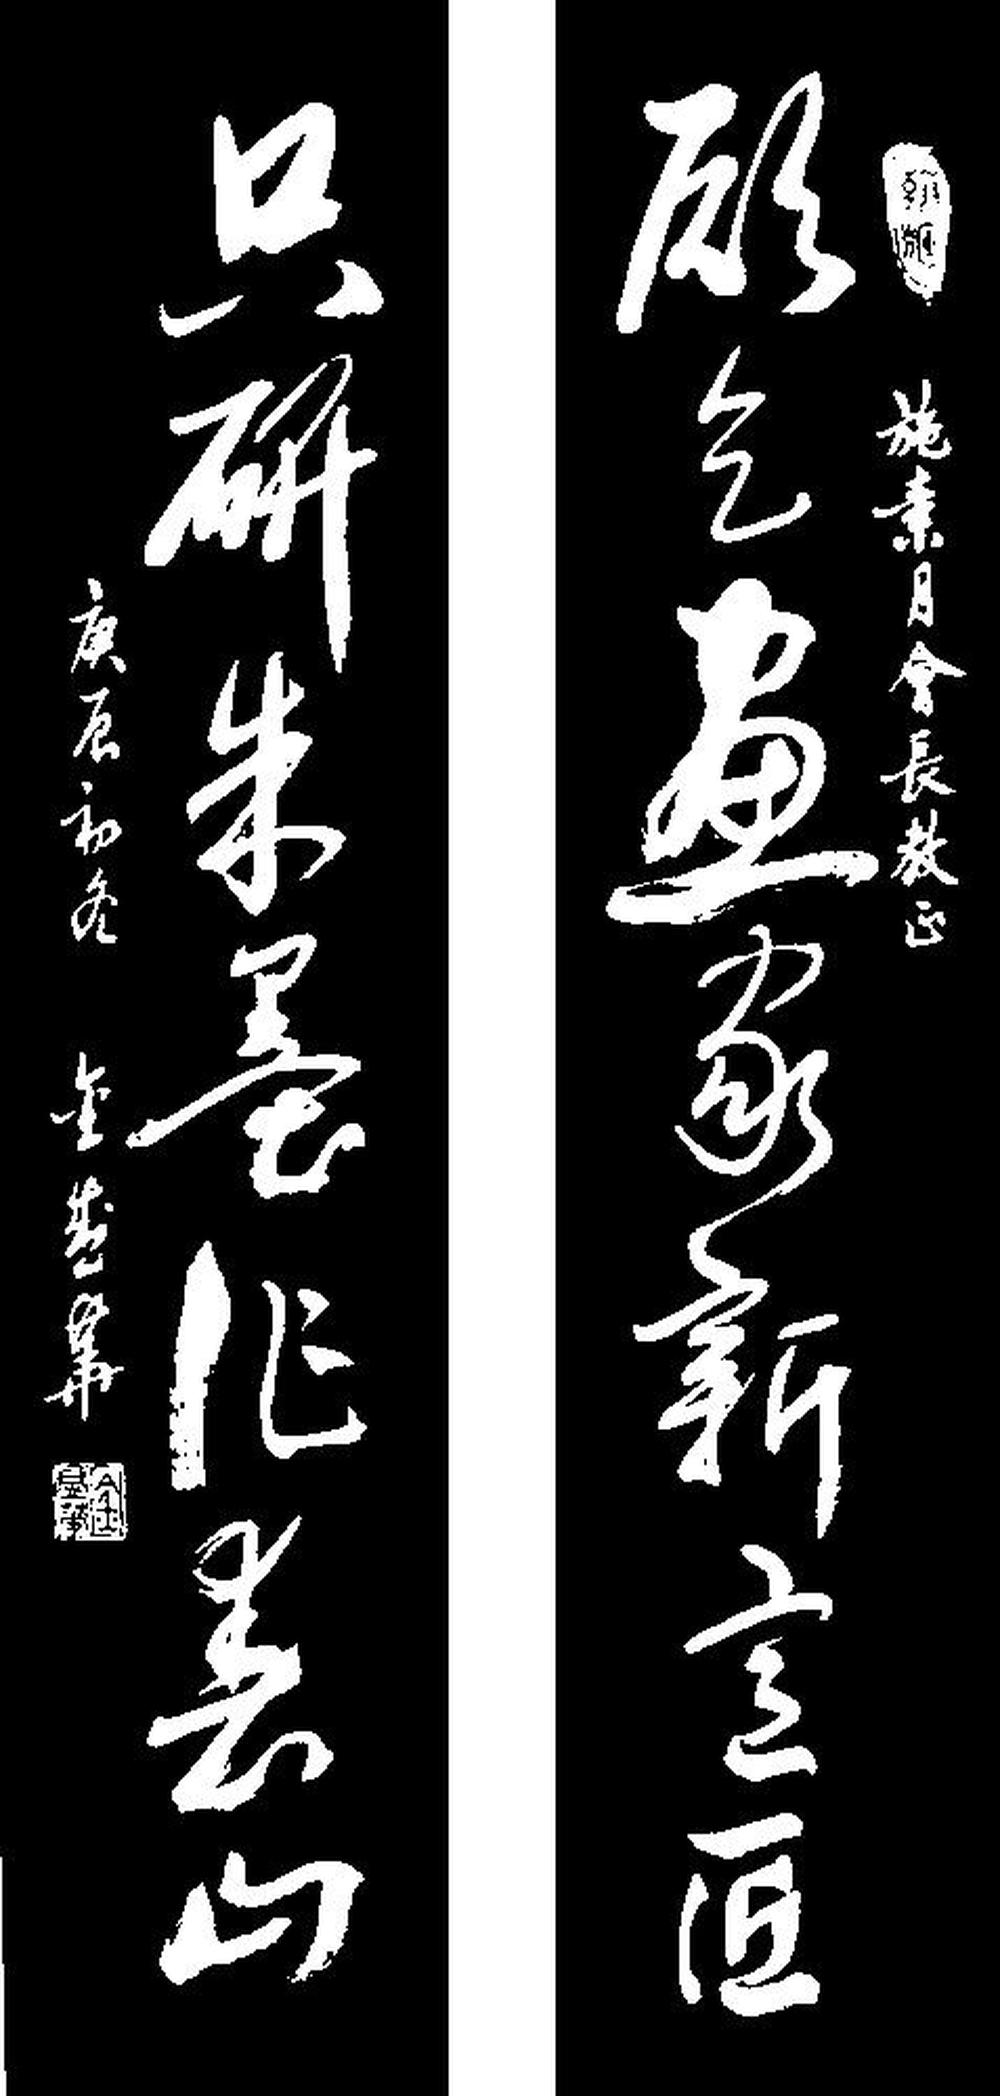 施素月會長教正
願乞畫家新意匠
只研朱墨作春山
庚辰初冬 金